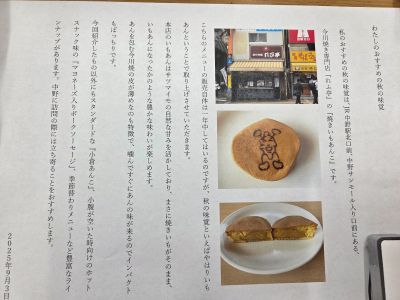 わたしのおすすめの秋の味覚
私のおすすめの秋の味覚は、JR中野駅北口前・中野サンモール入り口前にある、
今川焼き専門店「れふ亭」の「焼きいもあんこ」です。
こちらのメニューの販売自体は一年中してはいるのですが、秋の味覚といえばやはりいも
あんということで取り上げさせていただきます。
本店のいもあんはサツマイモの自然な甘みを活かしており、まさに焼きいもがそのまま、
いもあんになったかのような豊かな味わいが楽しめます。
あんを包む今川焼の皮が薄めなのも特徴で、噛んですぐにあんの味が来るのでインパクト
もばっちりです。
今回紹介したもの以外にもスタンダードな「小倉あんこ」、小腹が空いた時向けのホット
スナック味の「マヨネーズ入りポークソーセージ」、季節替わりメニューなど豊富なライ
ンナップがあります。中野に訪問の際には立ち寄ることをおすすめします。
2025年9月3日